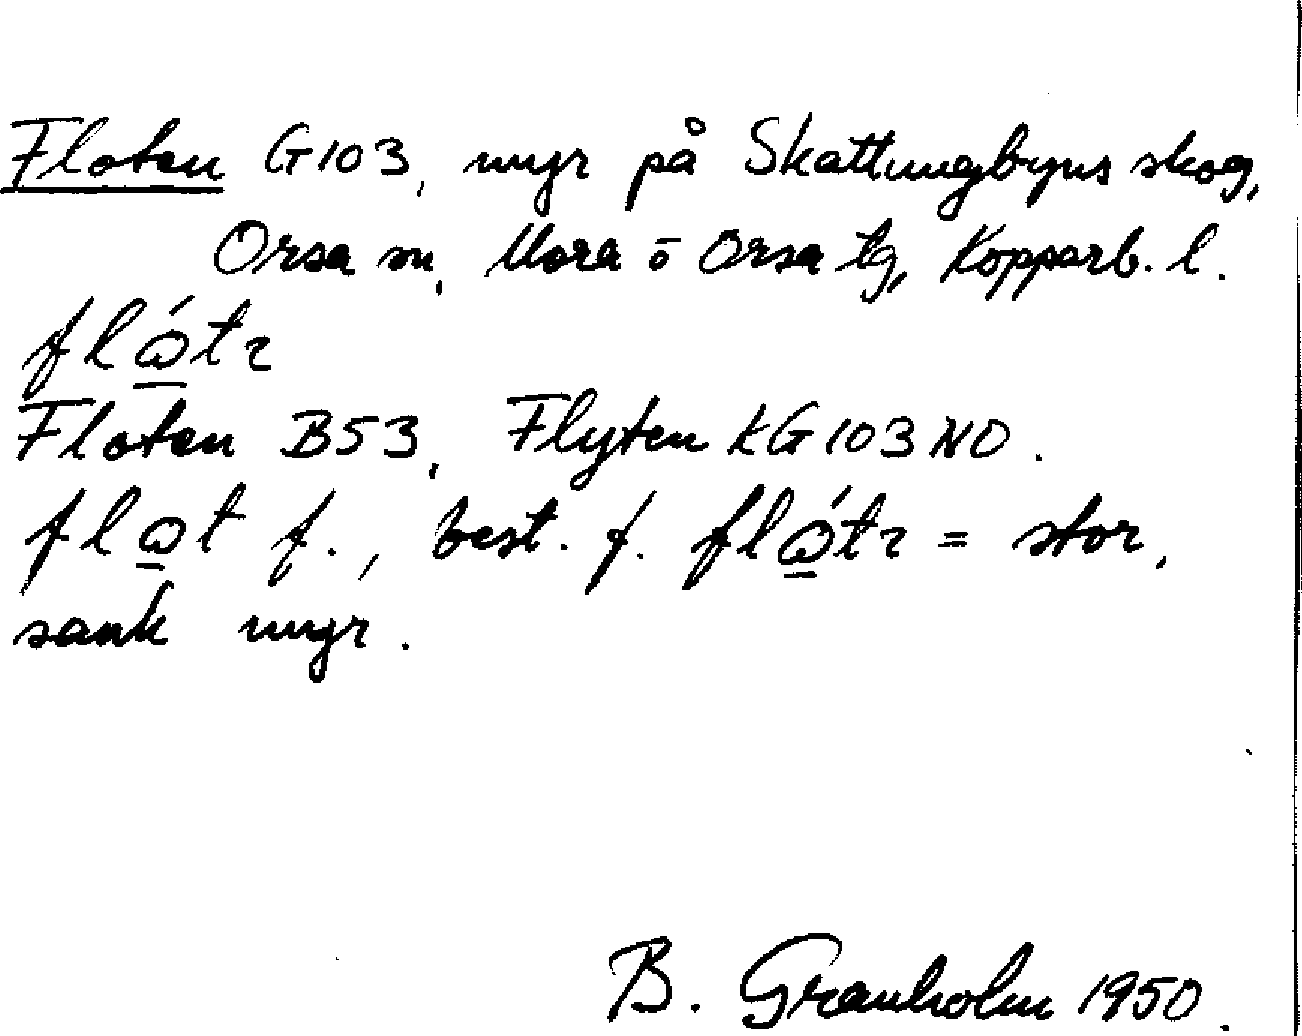 Floten G103, myr på Skattungbyns skog,
Orsa sn, Mora o Orsa tg, Kopparb. l.
flώ̲tɿ
Floten B53, Flyten kG103NO.
flω̲t f., best. f. flώ̲tɿ = stor,
sank myr.
B. Granholm 1950.